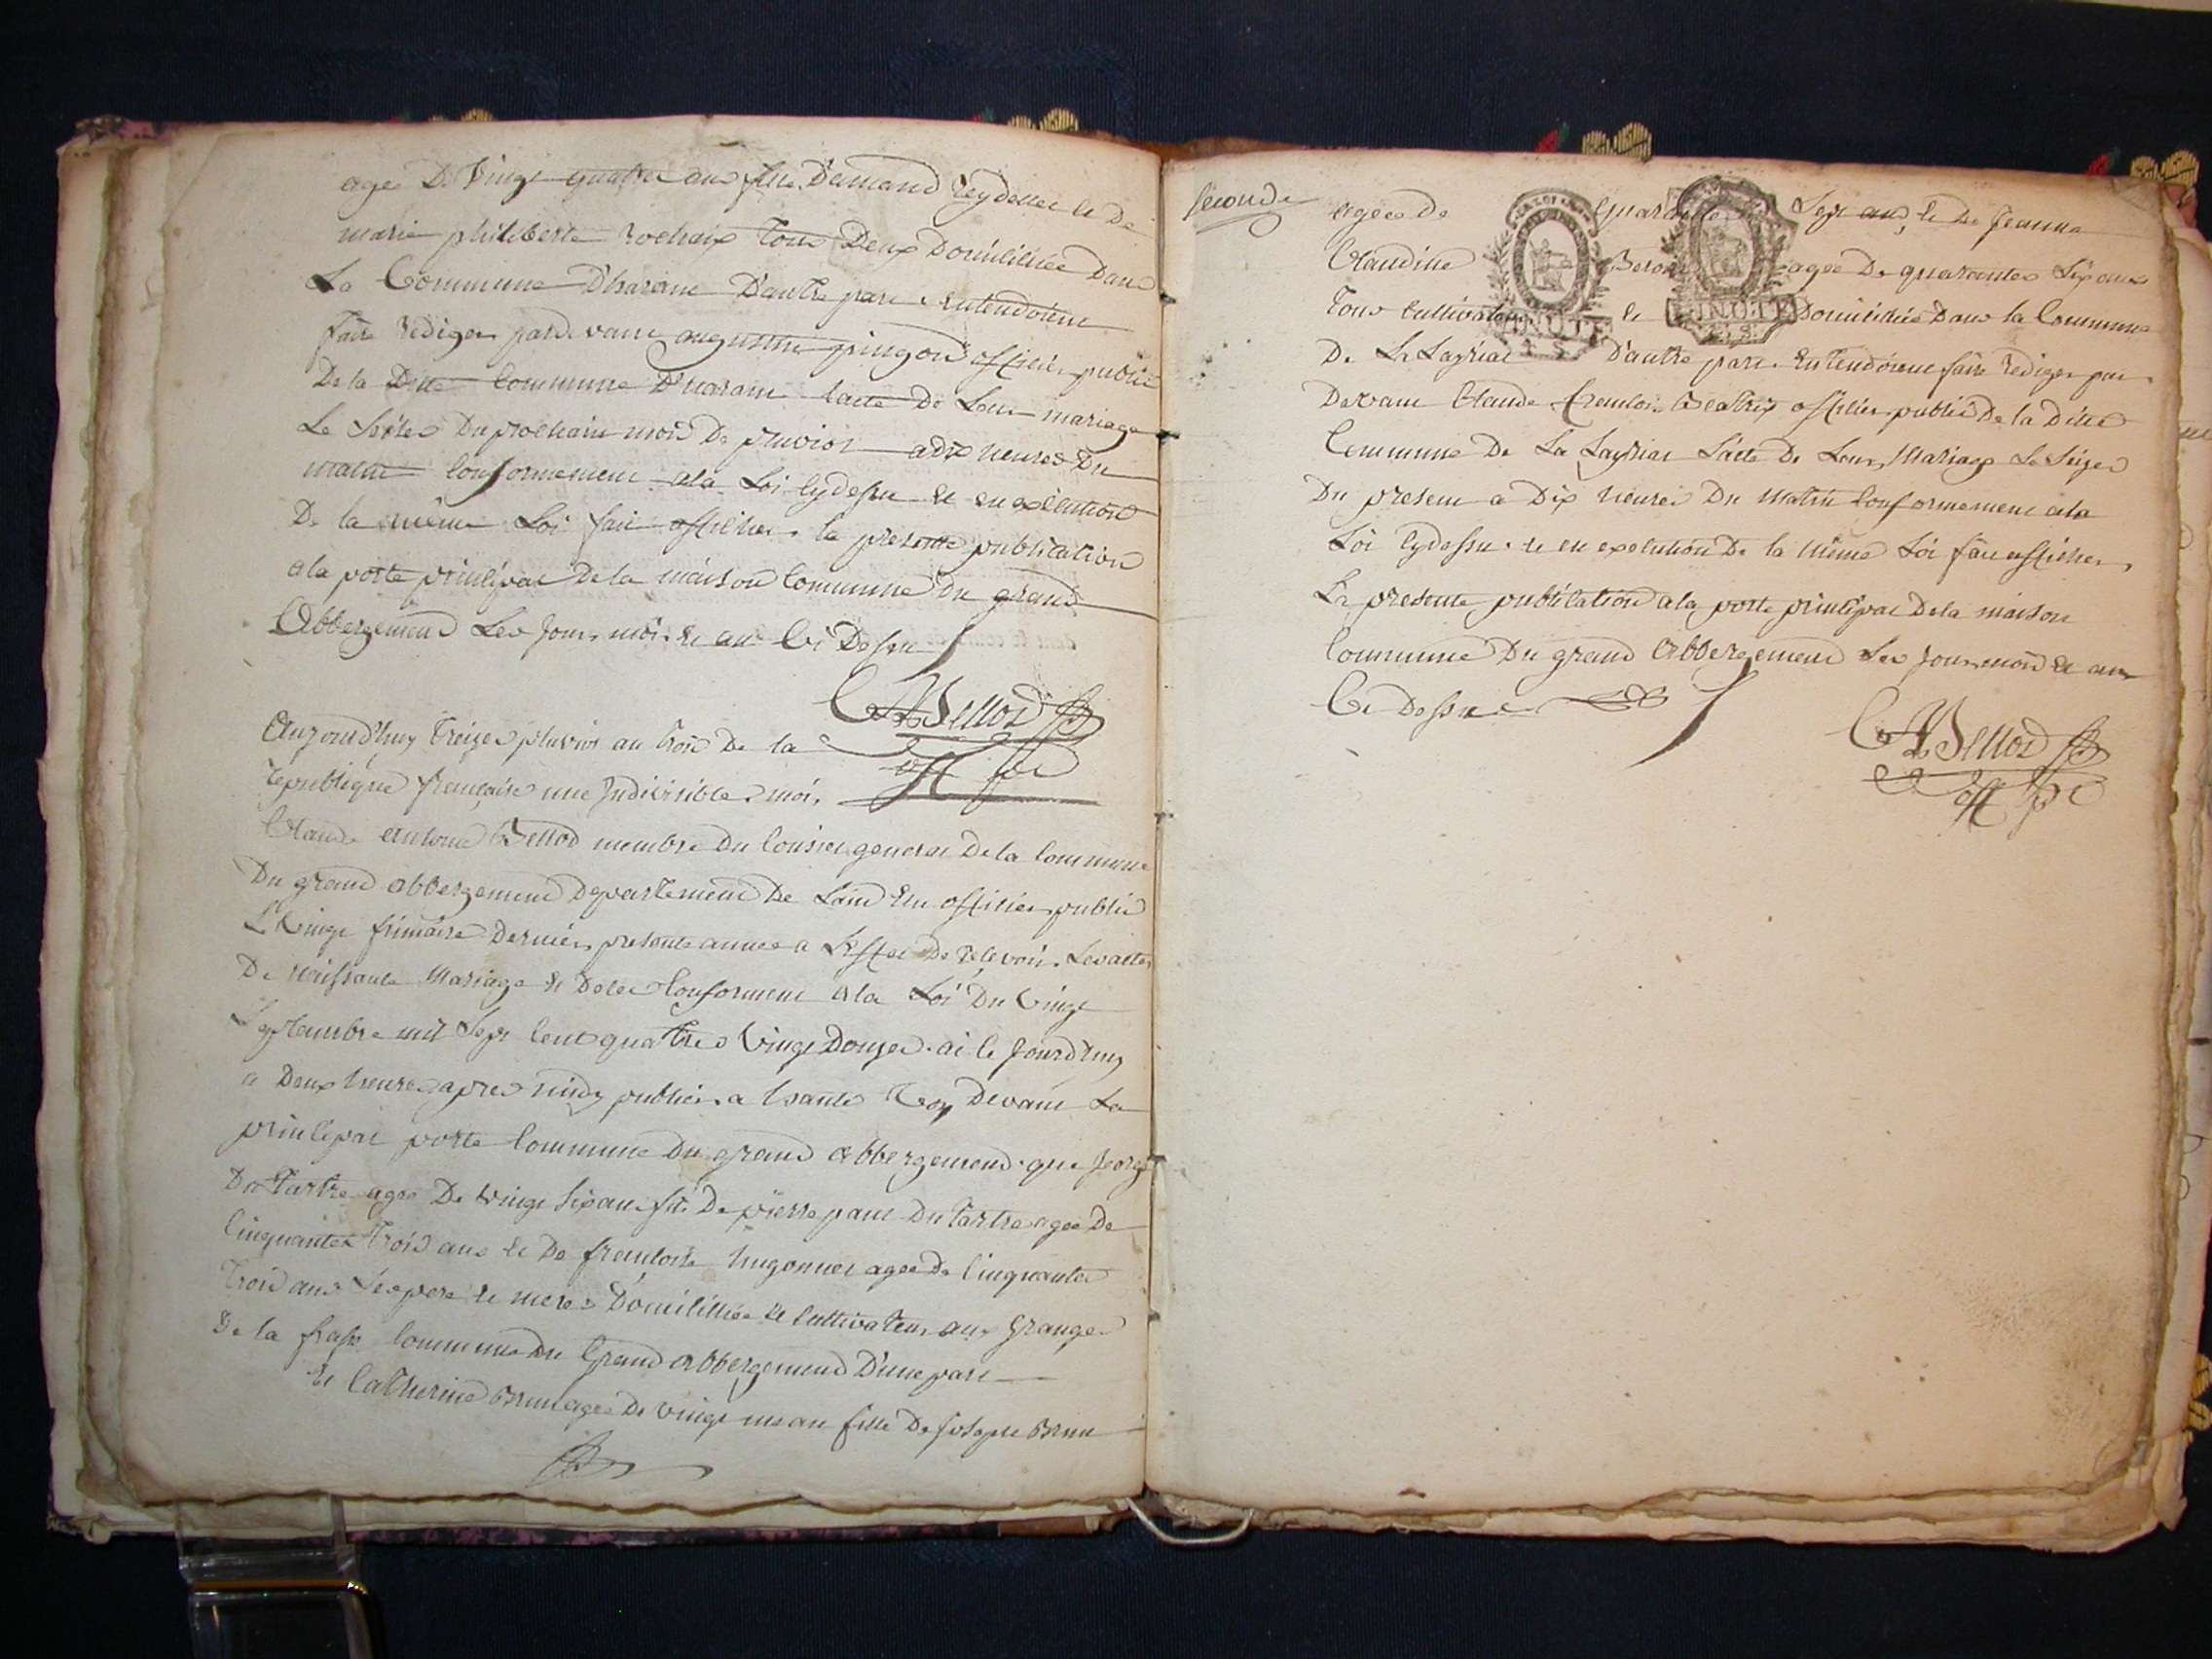 agée De Vingt quatre ans fille Damand Reydellet et De
marie philiberte Rochaix tous Deux Domiciliée Dans
La Commune D'hotonne D'autre part. Entendoient
faire Rediger pardevant augustin pingond officier public
De la Dette Commune D'hotonne lacte De Leur mariage
Le Seize Du prochain mois De pluvios a dix heures Du
matin Conformement ala Loi Cydessu et en execution
De la même Loi fait afficher la presente publication
a la porte principal De la maison Commune Du grand
Abbergement Les Jour mois et an Ci Dessu
C A Bellod
off pc
Aujourd'huy Treize pluvios an trois De la
republique française une Indivisible. moi,
Claude antoine Bellod membre Du Consiel general De la Commune
Du grand abbergement Departement De Lain Elu officier public
L Vingt frimaire Dernier presente annee a Leffet De recevoir Les actes
De naissance Mariage et Deces Conforment ala Loi Du Vingt
Septembre mil Sept Cent quatre Vingt Douze. ai Ce Jourdhuy
a Deux heures apres midy publier a haute Voy Devant La
principal porte Commune Du grand abbergement. que Jeorge
Du Tartre agée De vingt Six ans fils De pierre paul Du Tartre agée De
Cinquante Trois ans et De françoise hugonnet agée De Cinquante
Trois ans Ses pere et mere Domiciliée et Cultivateur aux Granges
De la frasse Commune Du Grand abbergement D'une part
Et Catherine Brun agée De vingt un an fille De Joseph Brun
Seconde
agée De Quarante Sept ans, et De Jeanne
Claudine agée De quarante Six ans
Tous Cultivateur et Domiciliée Dans la Commune
MINUTE MINUTE
De Le Layriat D'autre part. Entendoient faire Rediger par
Devant Claude françois Beatrix officier public De la Dite
Commune De La Layriat Lacte De Leur Mariage Le Seize
Du present a Dix heures Du Matin Conformement ala
Loi Cydessu. et en execution De la même Loi fait afficher
La presente publication a la porte principal De la maison
Commune Du grand Abbergement Les Jour mois et an
Ci Dessu
C A Bellod
off pc